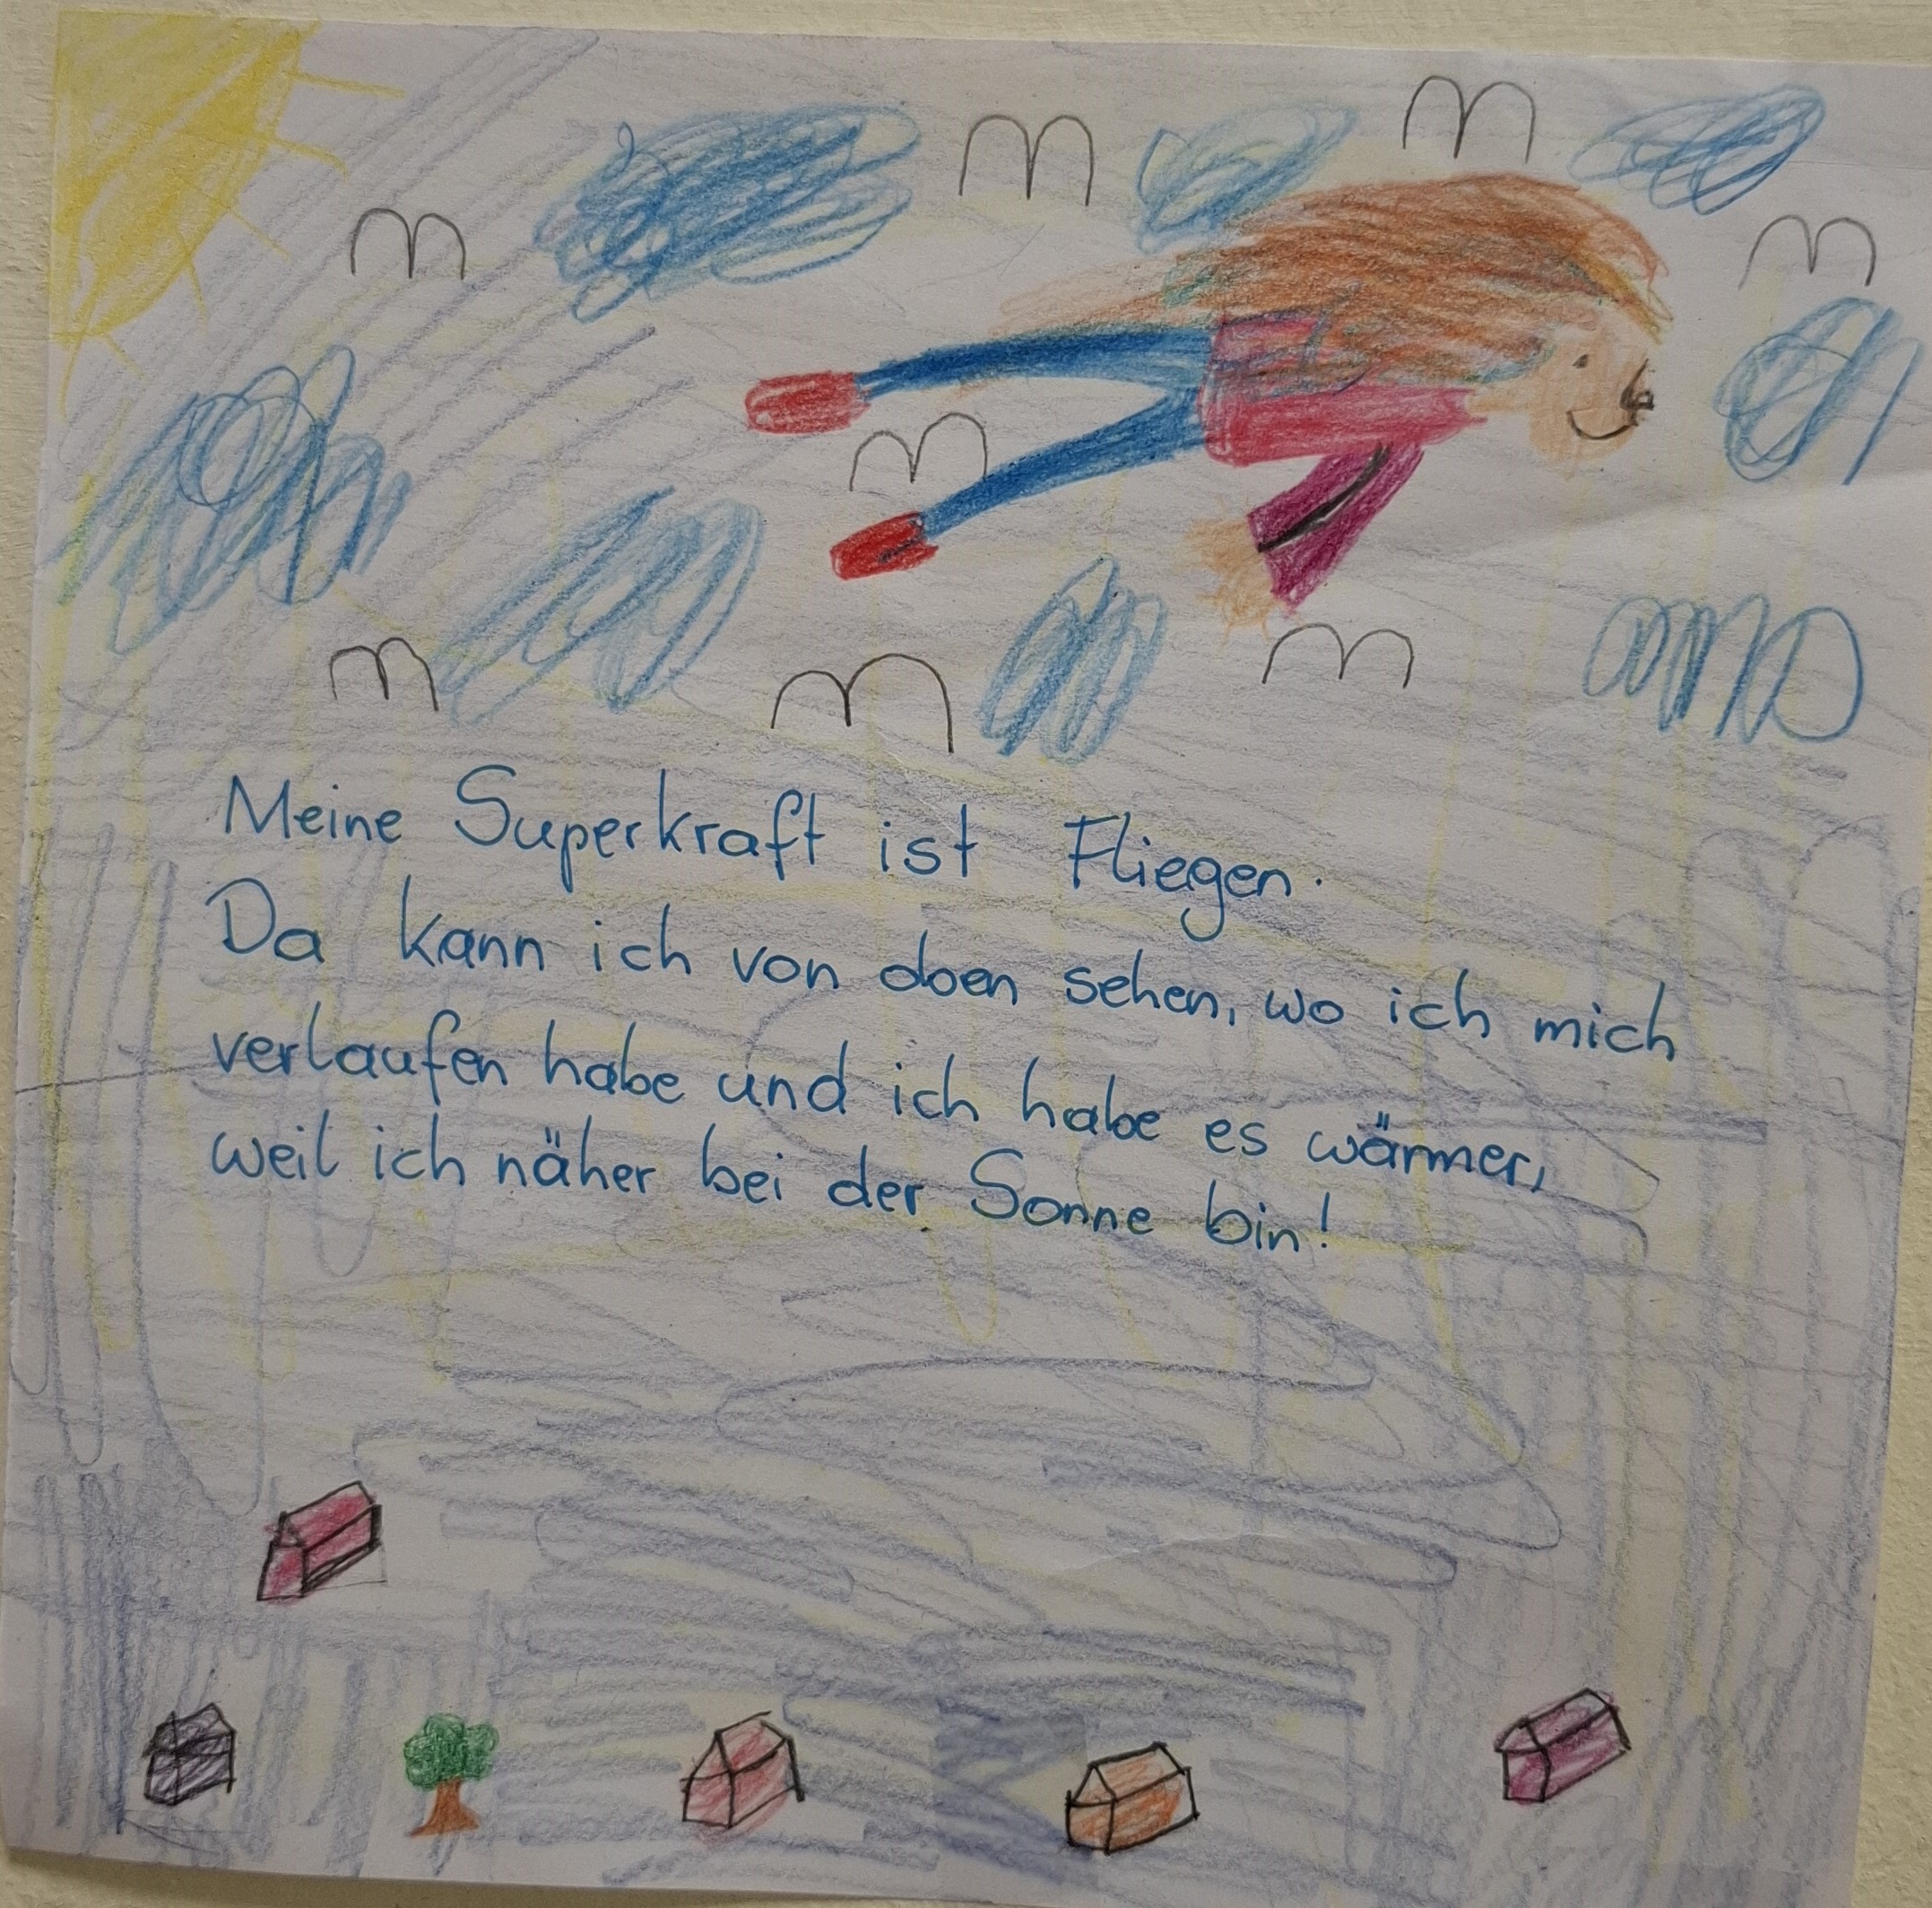 Meine Superkraft ist Fliegen.
Da kann ich von oben sehen, wo ich mich
verlaufen habe und ich habe es wärmer,
weil ich näher bei der Sonne bin!